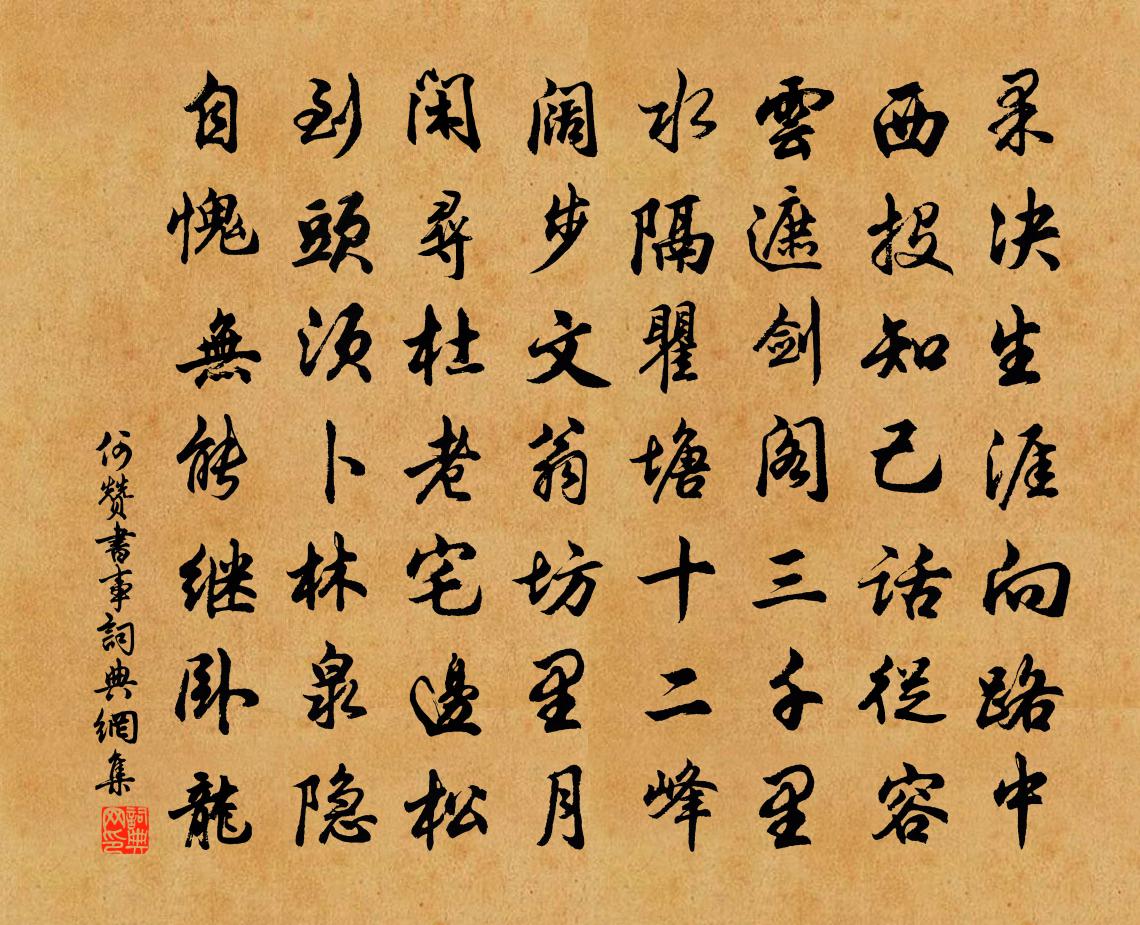 果决生涯向路中
西投知己话從容
雲遮剑阁三千里
水隔瞿塘十二峰
阔步文翁坊里月
闲尋杜老宅邊松
到頭须卜林泉隐
自愧無能继卧龍
何贊書事詞典網集
詞典网印